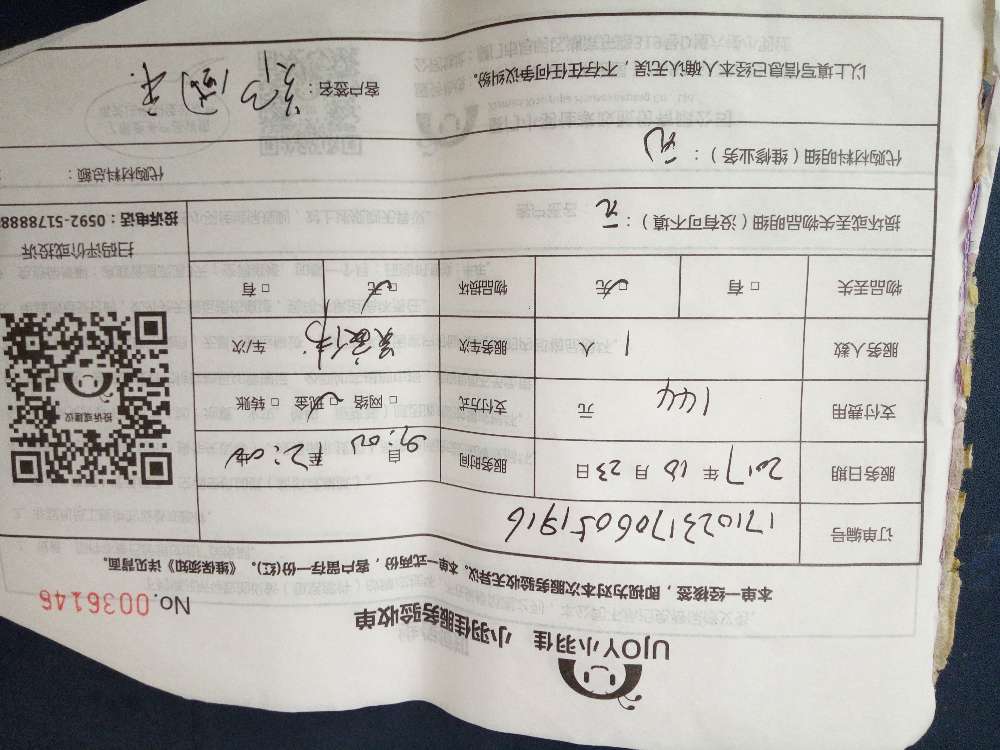 UJOY小羽佳 小羽佳服务验收单
No.0036146
本单一经核签,即视为对本次服务验收无异议。本单一式两份,客户留存一份(红)。《维保须知》详见背面。
订单编号 1710231706051916
服务日期 2017年10月23日 服务时间 自 9:00 至 2:00
支付费用 144 元 支付方式 □网络 □现金 □转账
服务人数 1 人 服务车次 车/次
物品丢失 □有 □无 物品损坏 □有 □无
投诉或建议
扫码评价或投诉
投诉电话:0592-5178888
损坏或丢失物品明细(没有可不填): 无
代购材料明细(维修业务): 无
代购材料总额:
以上填写信息已经本人确认无误,不存在任何争议纠纷。
客户签名: